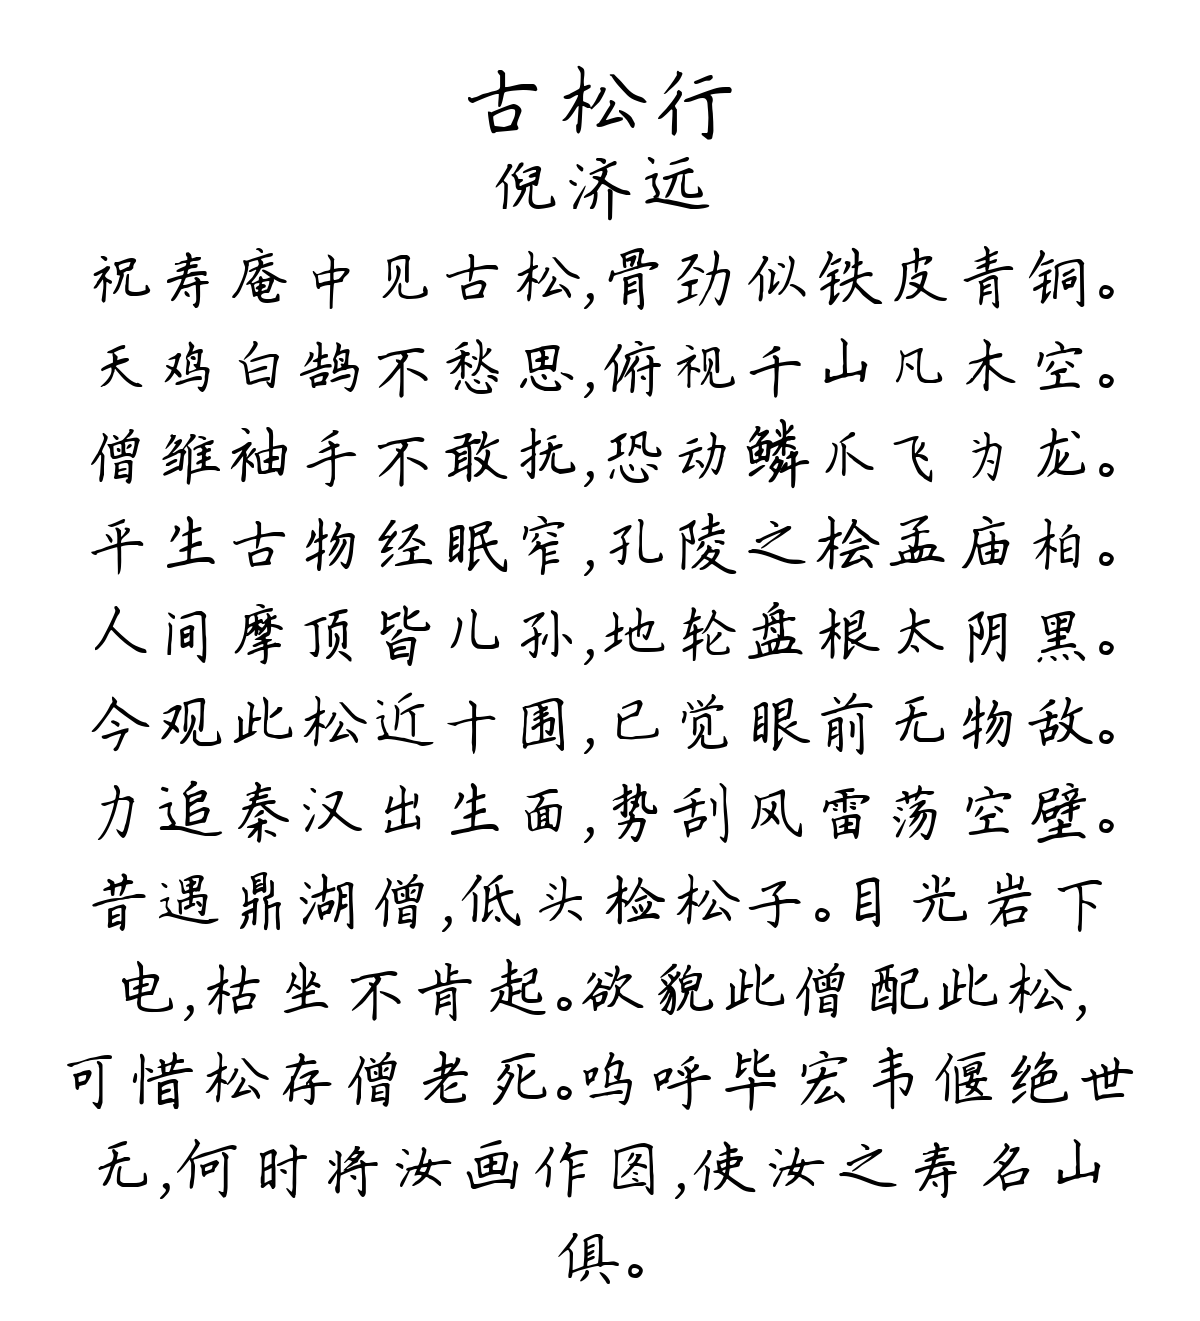 古松行
倪济远
祝寿庵中见古松,骨劲似铁皮青铜。
天鸡白鹄不愁思,俯视千山凡木空。
僧雏袖手不敢抚,恐动鳞爪飞为龙。
平生古物经眠窄,孔陵之桧孟庙柏。
人间摩顶皆儿孙,地轮盘根太阴黑。
今观此松近十围,已觉眼前无物敌。
力追秦汉出生面,势刮风雷荡空壁。
昔遇鼎湖僧,低头检松子。目光岩下
电,枯坐不肯起。欲貌此僧配此松,
可惜松存僧老死。呜呼毕宏韦偃绝世
无,何时将汝画作图,使汝之寿名山
俱。